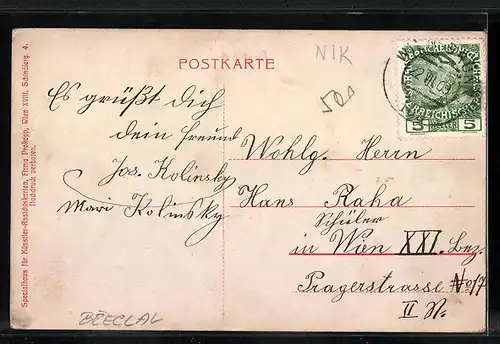 NIK
POSTKARTE
501
5 5
Es grüßt Dich
dein Freund
Jos. Kolinsky
Mari Kolinsky
Wohlg. Herrn
Hans Raha
Schüler
in Wien XXI. Bez.
Pragerstrasse No 17
II St.
BŘECLAV
Spezialhaus für Künstler-Ansichtskarten, Firma Prokopp, Wien XVIII, Schindlerg. 4.
Nachdruck verboten.